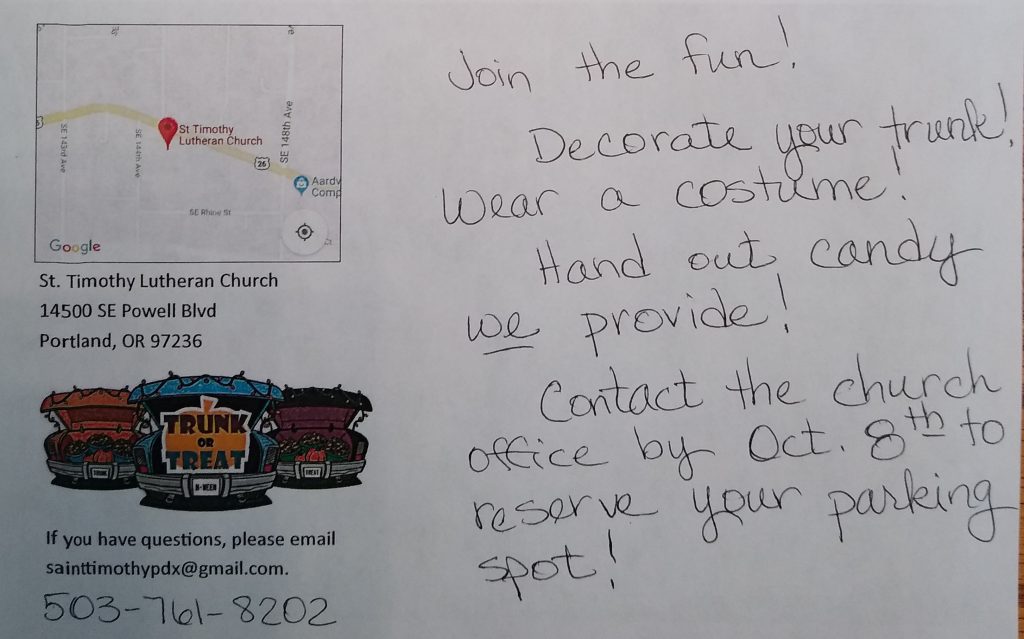 SE 143rd Ave
SE 144th Ave
SE 148th Ave
St Timothy
Lutheran Church
26
Aardv
Comp
SE Rhine St
Google
St. Timothy Lutheran Church
14500 SE Powell Blvd
Portland, OR 97236
TRUNK
OR
TREAT
TRUNK
H-WEEN
TREAT
If you have questions, please email
sainttimothypdx@gmail.com.
503-761-8202
Join the fun!
Decorate your trunk!
Wear a costume!
Hand out candy
we provide!
Contact the church
office by Oct. 8th to
reserve your parking
spot!